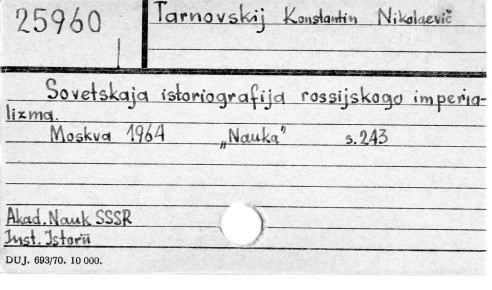 25960
Tarnovskij Konstantin Nikolaevič
Sovetskaja istoriografija rossijskogo imperia-
lizma.
Moskva 1964 „Nauka" s.243
Akad. Nauk SSSR
Inst. Istorii
DUJ. 693/70. 10 000.